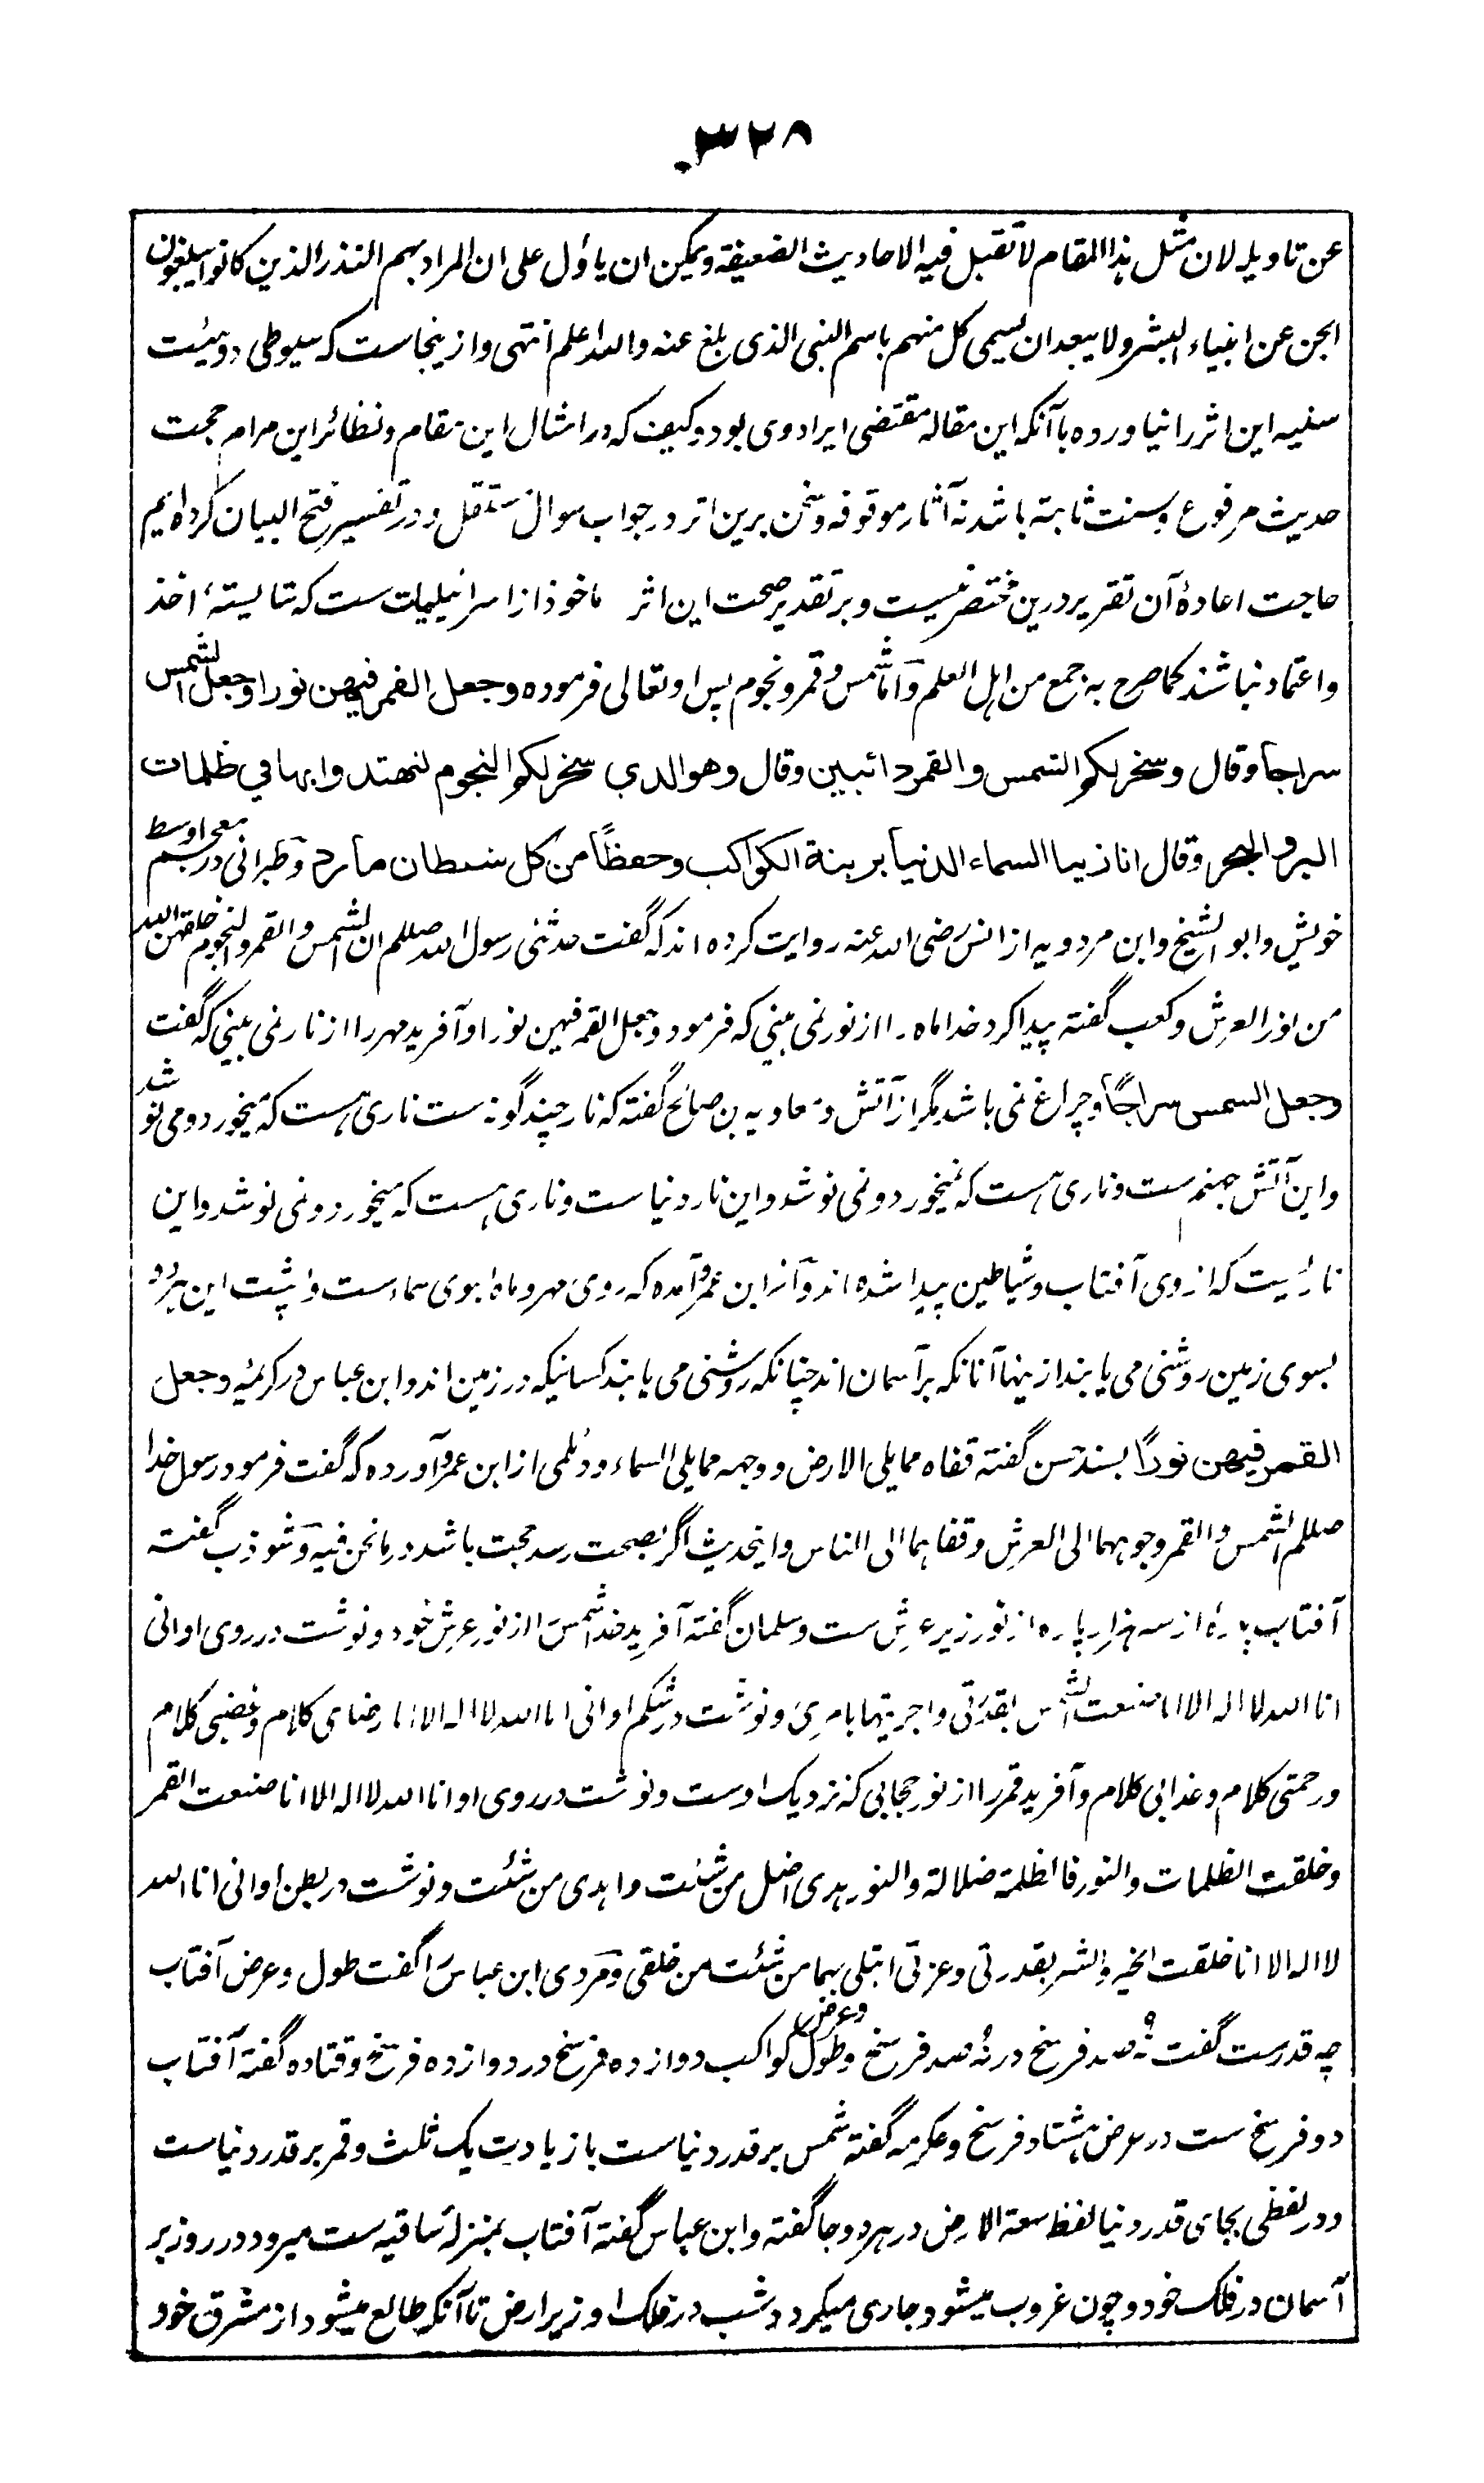 ۳۲۸
عن تاویله لان مثل هذا المقام لا تقبل فیه الاحادیث الضعیفة ویمکن ان یأول علی ان المراد بهم النذر الذین کانوا یبلغون
الجن عن انبیاء البشر ولا یبعد ان یسمی کل منهم باسم النبی الذی بلغ عنه والله اعلم انتهی و ازینجاست که سیوطی در هیئت
سنیه این اثر را نیاورده با آنکه این مقاله مقتضی ایراد وی بود و کیف که در امثال این مقام و نظائر این مرام حجت
حدیث مرفوع و سنت ثابته باشد نه آثار موقوفه و سخن برین اثر در جواب سوال مستقل و در تفسیر فتح البیان کرده ایم
حاجت اعادهٔ آن تقریر درین مختصر نیست و بر تقدیر صحت این اثر ماخوذ از اسرائیلیات ست که شایستهٔ اخذ
و اعتماد نباشند کما صرح به جمع من اهل العلم و اما شمس و قمر و نجوم پس او تعالی فرموده وجعل القمر فیهن نورا وجعل الشمس
سراجا وقال وسخر لکم الشمس والقمر دائبین وقال وهو الذی سخر لکم النجوم لتهتدوا بها فی ظلمات
البر والبحر وقال انا زینا السماء الدنیا بزینة الکواکب وحفظاً من کل شیطان مارد و طبرانی در معجم اوسط
خویش و ابو الشیخ و ابن مردویه از انس رضی الله عنه روایت کرده اند که گفت حدثنی رسول الله صللم ان الشمس والقمر والنجوم خلقهن الله
من نور العرش و کعب گفته پیدا کرد خدا ماه را از نور نمی بینی که فرمود وجعل القمر فیهن نورا و آفرید مهر را از نار نمی بینی که گفت
وجعل الشمس سراجاً و چراغ نمی باشد مگر از آتش و معاویه بن صالح گفته که نار چند گونه ست ناری هست که میخورد و می نوشد
و این آتش جهنم ست و ناری هست که نمیخورد و نمی نوشد و این نار دنیا ست و ناری هست که میخورد و نمی نوشد و این
ناریست که از وی آفتاب و شیاطین پیدا شده اند و از ابن عمرو آمده که روی مهر و ماه بسوی سماء ست و پشت این هر دو
بسوی زمین روشنی می یابند ازینها آنانکه بر آسمان اند چنانکه روشنی می یابند کسانیکه در زمین اند و ابن عباس در کریمهٔ وجعل
القمر فیهن نوراً بسند حسن گفته قفاه مما یلی الارض و وجهه مما یلی السماء و دیلمی از ابن عمرو آورده که گفت فرمود رسول خدا
صللم الشمس والقمر وجوههما الی العرش وقفاهما الی الناس و اینحدیث اگر بصحت رسد حجت باشد در ما نحن فیه و شوذب گفته
آفتاب پارهٔ از سه هزار پاره از نور زیر عرش ست و سلمان گفته آفرید خدا شمس را از نور عرش خود و نوشت در روی او انی
انا الله لا اله الا انا صنعت الشمس بقدرتی واجریتها بامری و نوشت در شکم او انی انا الله لا اله الا انا رضای کلام وغضبی کلام
ورحمتی کلام وعذابی کلام و آفرید قمر را از نور حجابی که نزدیک اوست و نوشت در روی او انا الله لا اله الا انا صنعت القمر
وخلقت الظلمات والنور فالظلمة ضلالة والنور هدی اضل من شئت واهدی من شئت و نوشت در بطن او انی انا الله
لا اله الا انا خلقت الخیر والشر بقدرتی وعزتی ابتلی بهما من شئت من خلقی و مردی ابن عباس را گفت طول و عرض آفتاب
چه قدرست گفت نه صد فرسخ در نه صد فرسخ و طول و عرض کواکب دوازده فرسخ در دوازده فرسخ و قتاده گفته آفتاب
دو فرسخ ست در عرض هشتاد فرسخ و عکرمه گفته شمس بر قدر دنیا ست با زیادت یک ثلث و قمر بر قدر دنیاست
و در لفظی بجای قدر دنیا لفظ سعة الارض در هر دو جا گفته و ابن عباس گفته آفتاب بمنزلهٔ ساقیه ست میرود در روز بر
آسمان در فلک خود و چون غروب میشود جاری میگردد شب در فلک او زیر ارض تا آنکه طالع میشود از مشرق خود